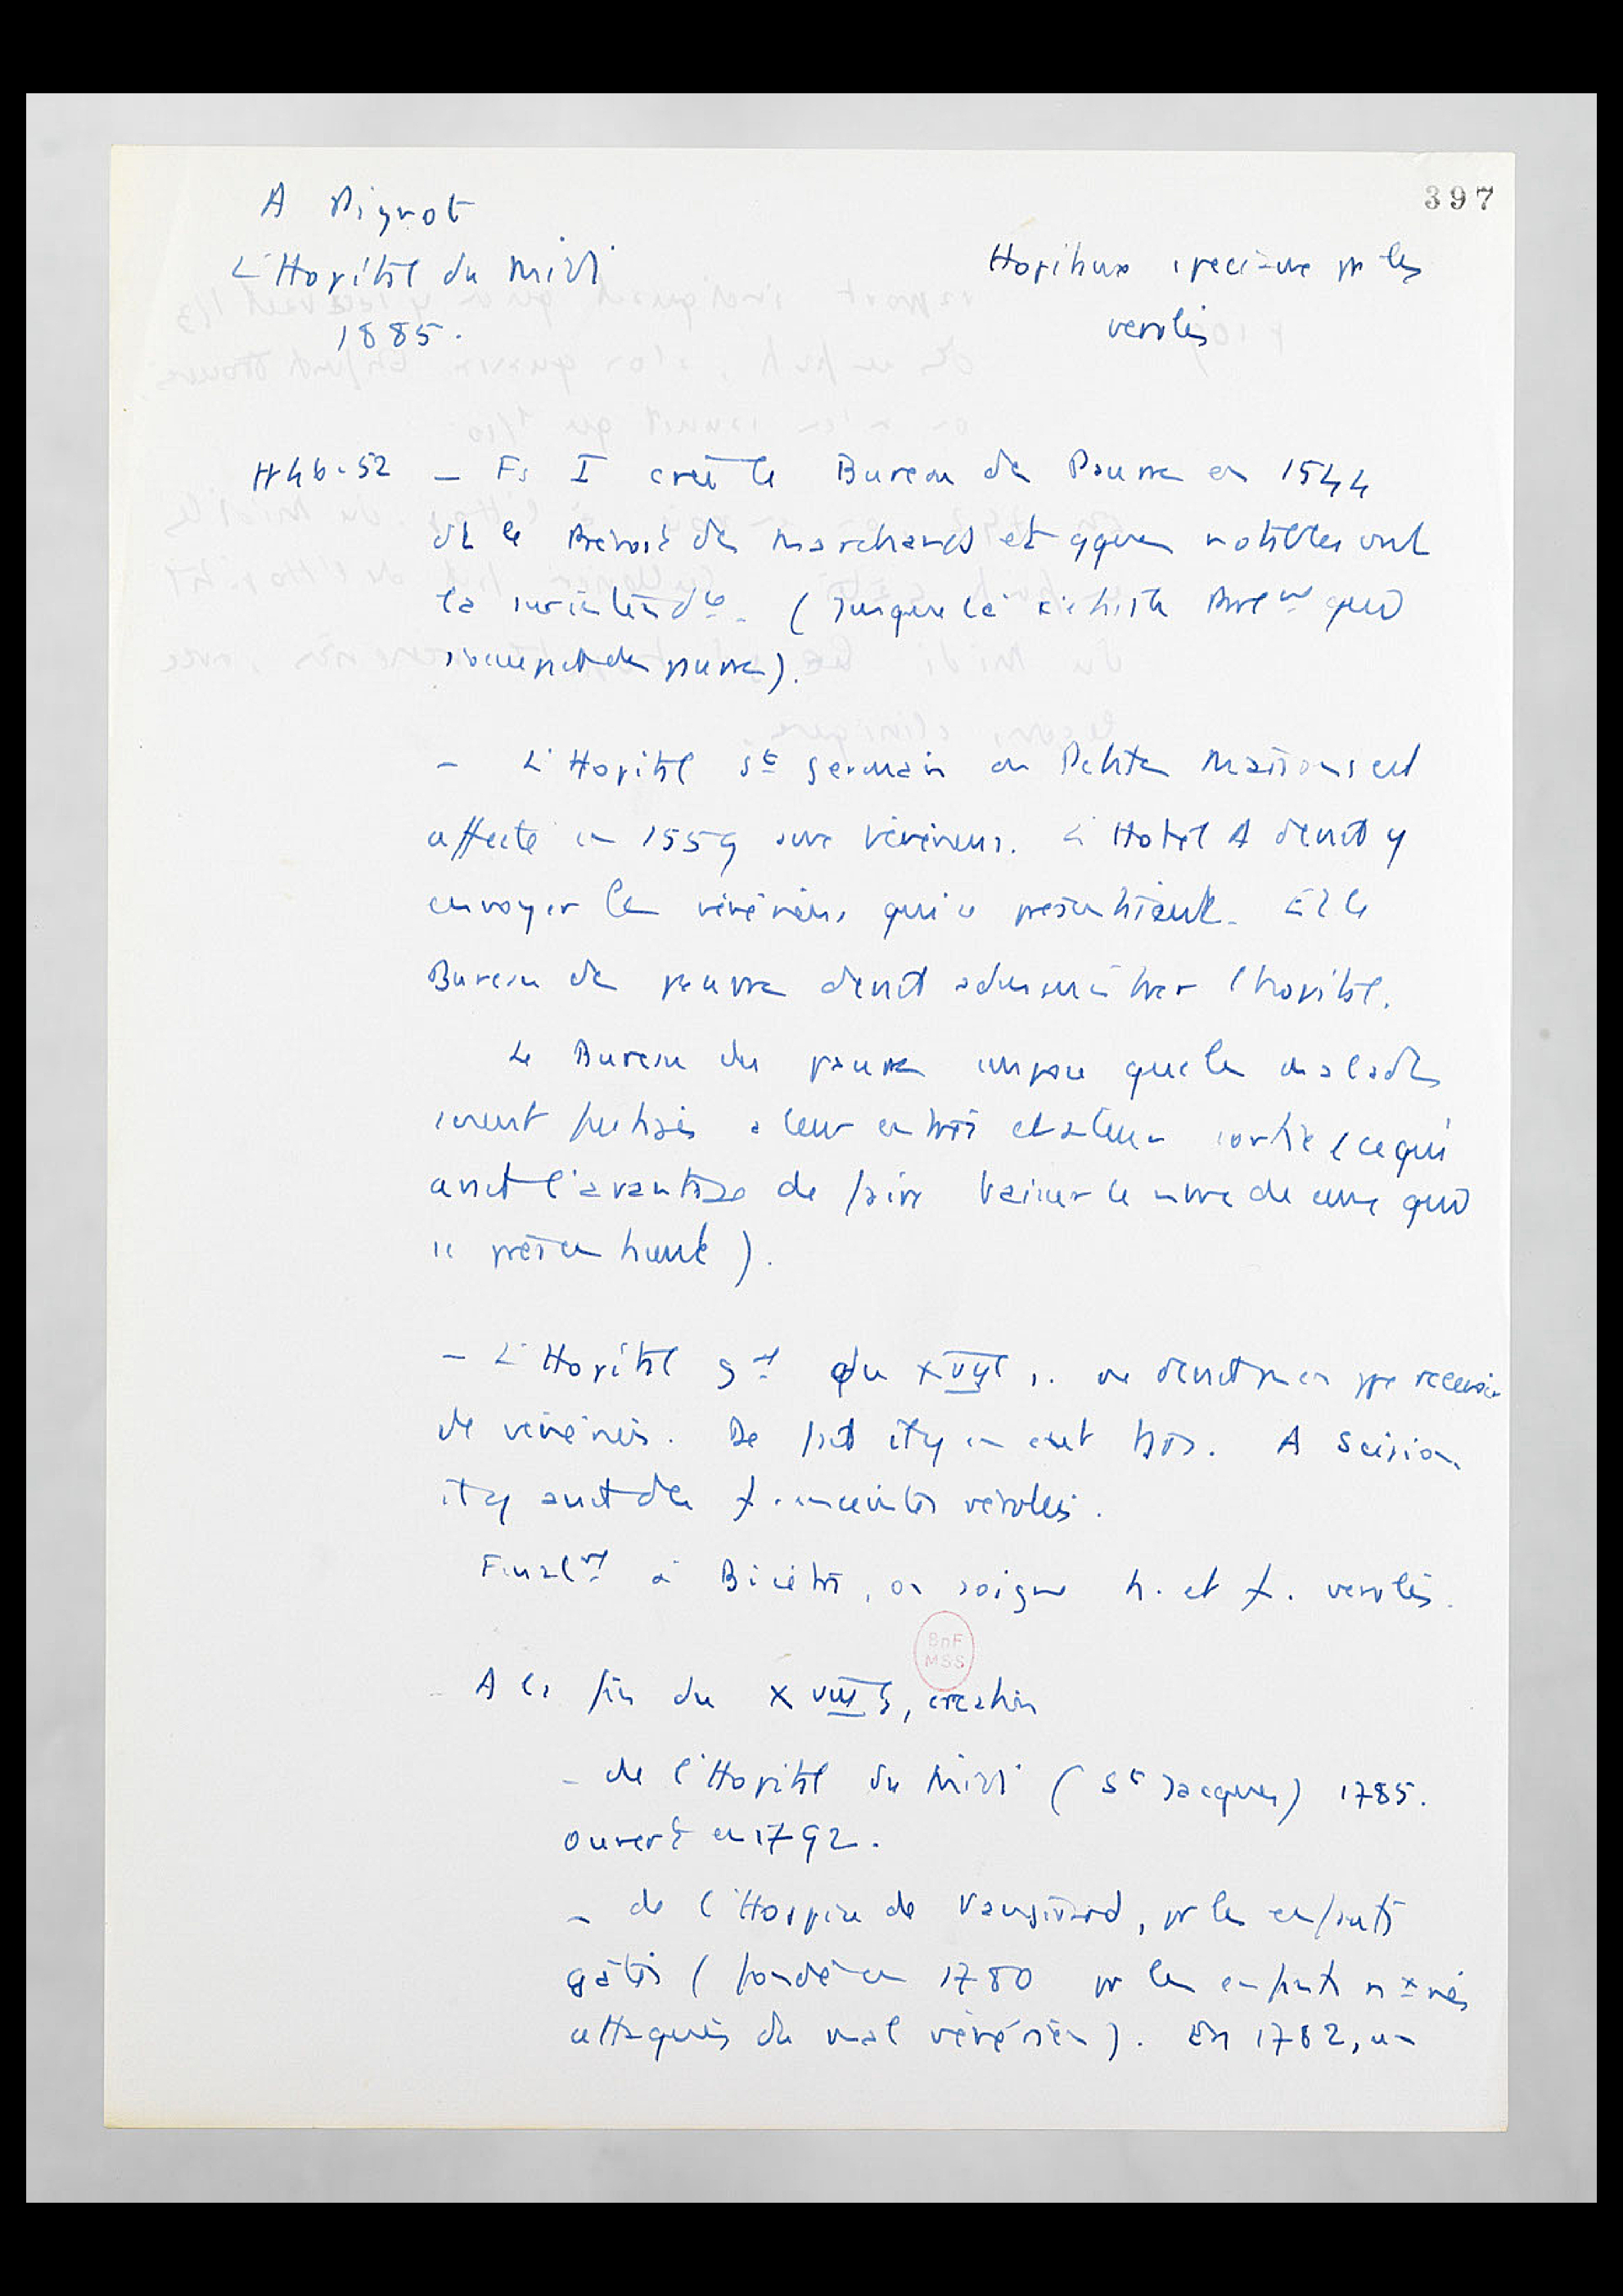 397
A Pignot
L'Hopital du Midi
1885.
Hopitaux speciaux pr les
verolés
46-52 – Fs I crée le Bureau des Pauvres en 1544
dt le Prévot des marchands et qques notables ont
la surintendce. (Jusque là c'était le qui
s'occupait des pauvres).
– L'Hopital St Germain ou Petites Maisons est
affecté en 1559 aux vénériens. L'Hotel devait y
envoyer les vénériens qui s'y présentaient. Et le
Bureau des pauvres devait administrer l'hopital.
Le Bureau des pauvres impose que les malades
soient fustigés à leur entrée et à leur sortie (ce qui
avait l'avantage de faire baisser le nbre de ceux qui
se présentaient).
– L'Hopital gal du XVIIe s. ne devait pas en ppe recevoir
de vénériens. De fait il y en avait trop. A
il y avait des f. enceintes vérolées.
Finalt à Bicêtre, on soigne h. et f. verolés.
BnF
MSS
– A la fin du XVIII s, création
– de l'Hopital du Midi (St Jacques) 1785.
ouvert en 1792.
– de l'Hospice de Vaugirard, pr les enfants
gâtés (fondé en 1780 pr les enfants nx nés
attaqués du mal vénérien). En 1782, un